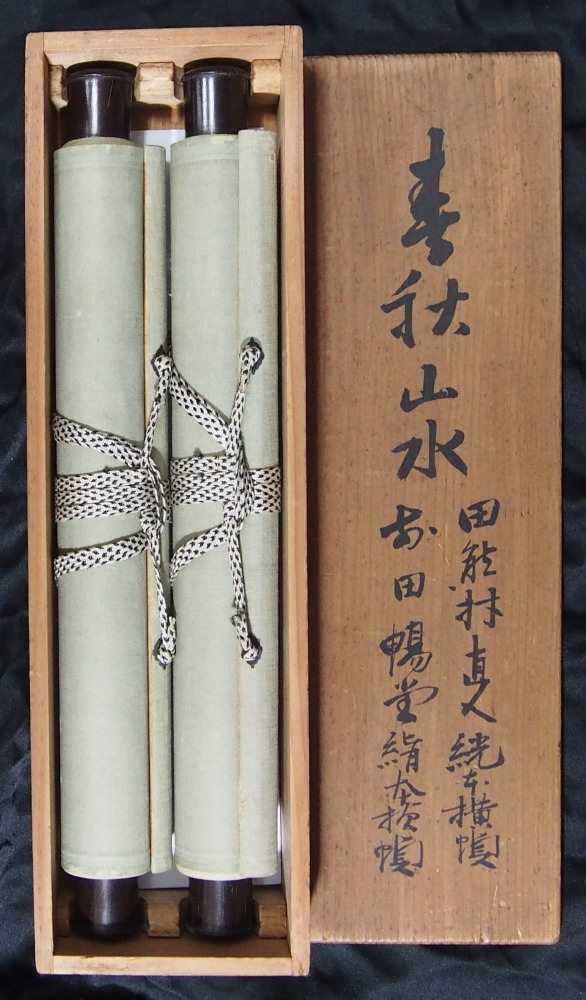 春秋山水
田能村直入絖本横幅
前田暢堂絹本横幅